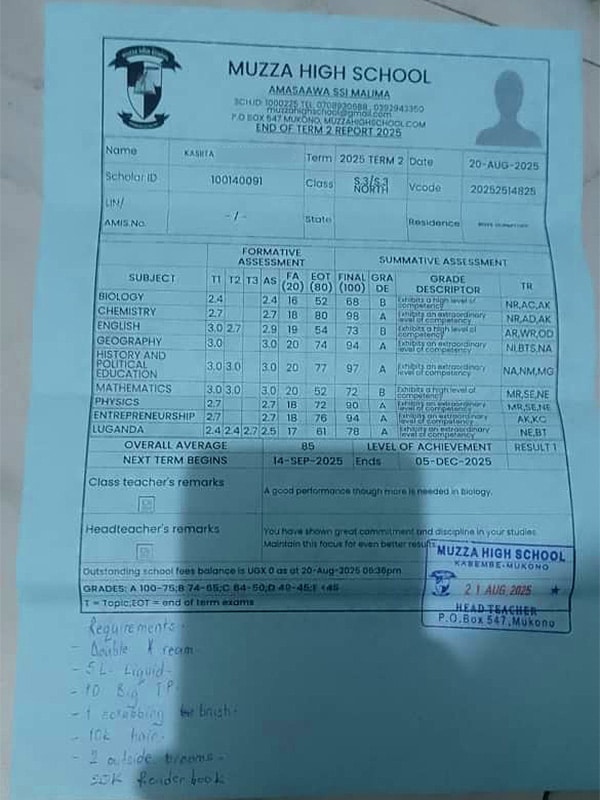 MUZZA HIGH SCHOOL
AMASAAWA SSI MALIMA
SCH.ID: 1000225 TEL: 0708930688 , 0392943350
muzzahighschool@gmail.com
P.O BOX 547 MUKONO, MUZZAHIGHSCHOOL.COM
END OF TERM 2 REPORT 2025
Name KASIITA Term 2025 TERM 2 Date 20-AUG-2025
Scholar ID 100140091 Class S.3/S.3 NORTH Vcode 20252514825
LIN/
AMIS.No. - / - State Residence
FORMATIVE ASSESSMENT SUMMATIVE ASSESSMENT
SUBJECT T1 T2 T3 AS FA (20) EOT (80) FINAL (100) GRA DE GRADE DESCRIPTOR TR
BIOLOGY 2.4 2.4 16 52 68 B Exhibits a high level of competency NR,AC,AK
CHEMISTRY 2.7 2.7 18 80 98 A Exhibits an extraordinary level of competency NR,AD,AK
ENGLISH 3.0 2.7 2.9 19 54 73 B Exhibits a high level of competency AR,WR,OD
GEOGRAPHY 3.0 3.0 20 74 94 A Exhibits an extraordinary level of competency NI,BTS,NA
HISTORY AND POLITICAL EDUCATION 3.0 3.0 3.0 20 77 97 A Exhibits an extraordinary level of competency NA,NM,MG
MATHEMATICS 3.0 3.0 3.0 20 52 72 B Exhibits a high level of competency MR,SE,NE
PHYSICS 2.7 2.7 18 72 90 A Exhibits an extraordinary level of competency MR,SE,NE
ENTREPRENEURSHIP 2.7 2.7 18 76 94 A Exhibits an extraordinary level of competency AK,KC
LUGANDA 2.4 2.4 2.7 2.5 17 61 78 A Exhibits an extraordinary level of competency NE,BT
OVERALL AVERAGE 85 LEVEL OF ACHIEVEMENT RESULT 1
NEXT TERM BEGINS 14-SEP-2025 Ends 05-DEC-2025
Class teacher's remarks
A good performance though more is needed in Biology.
Headteacher's remarks
You have shown great commitment and discipline in your studies.
Maintain this focus for even better results.
Outstanding school fees balance is UGX 0 as at 20-Aug-2025 05:36pm
GRADES: A 100-75;B 74-65;C 64-50;D 49-45;F <45
T = Topic;EOT = end of term exams
MUZZA HIGH SCHOOL
KABEMBE-MUKONO
21 AUG 2025
HEAD TEACHER
P.O.Box 547,Mukono
Requirements-
- Double A ream-
- 5L- Liquid-
- 10 Big TP
- 1 scrabbing brush-
- 10k hair-
- 2 outside brooms-
50K Reader book